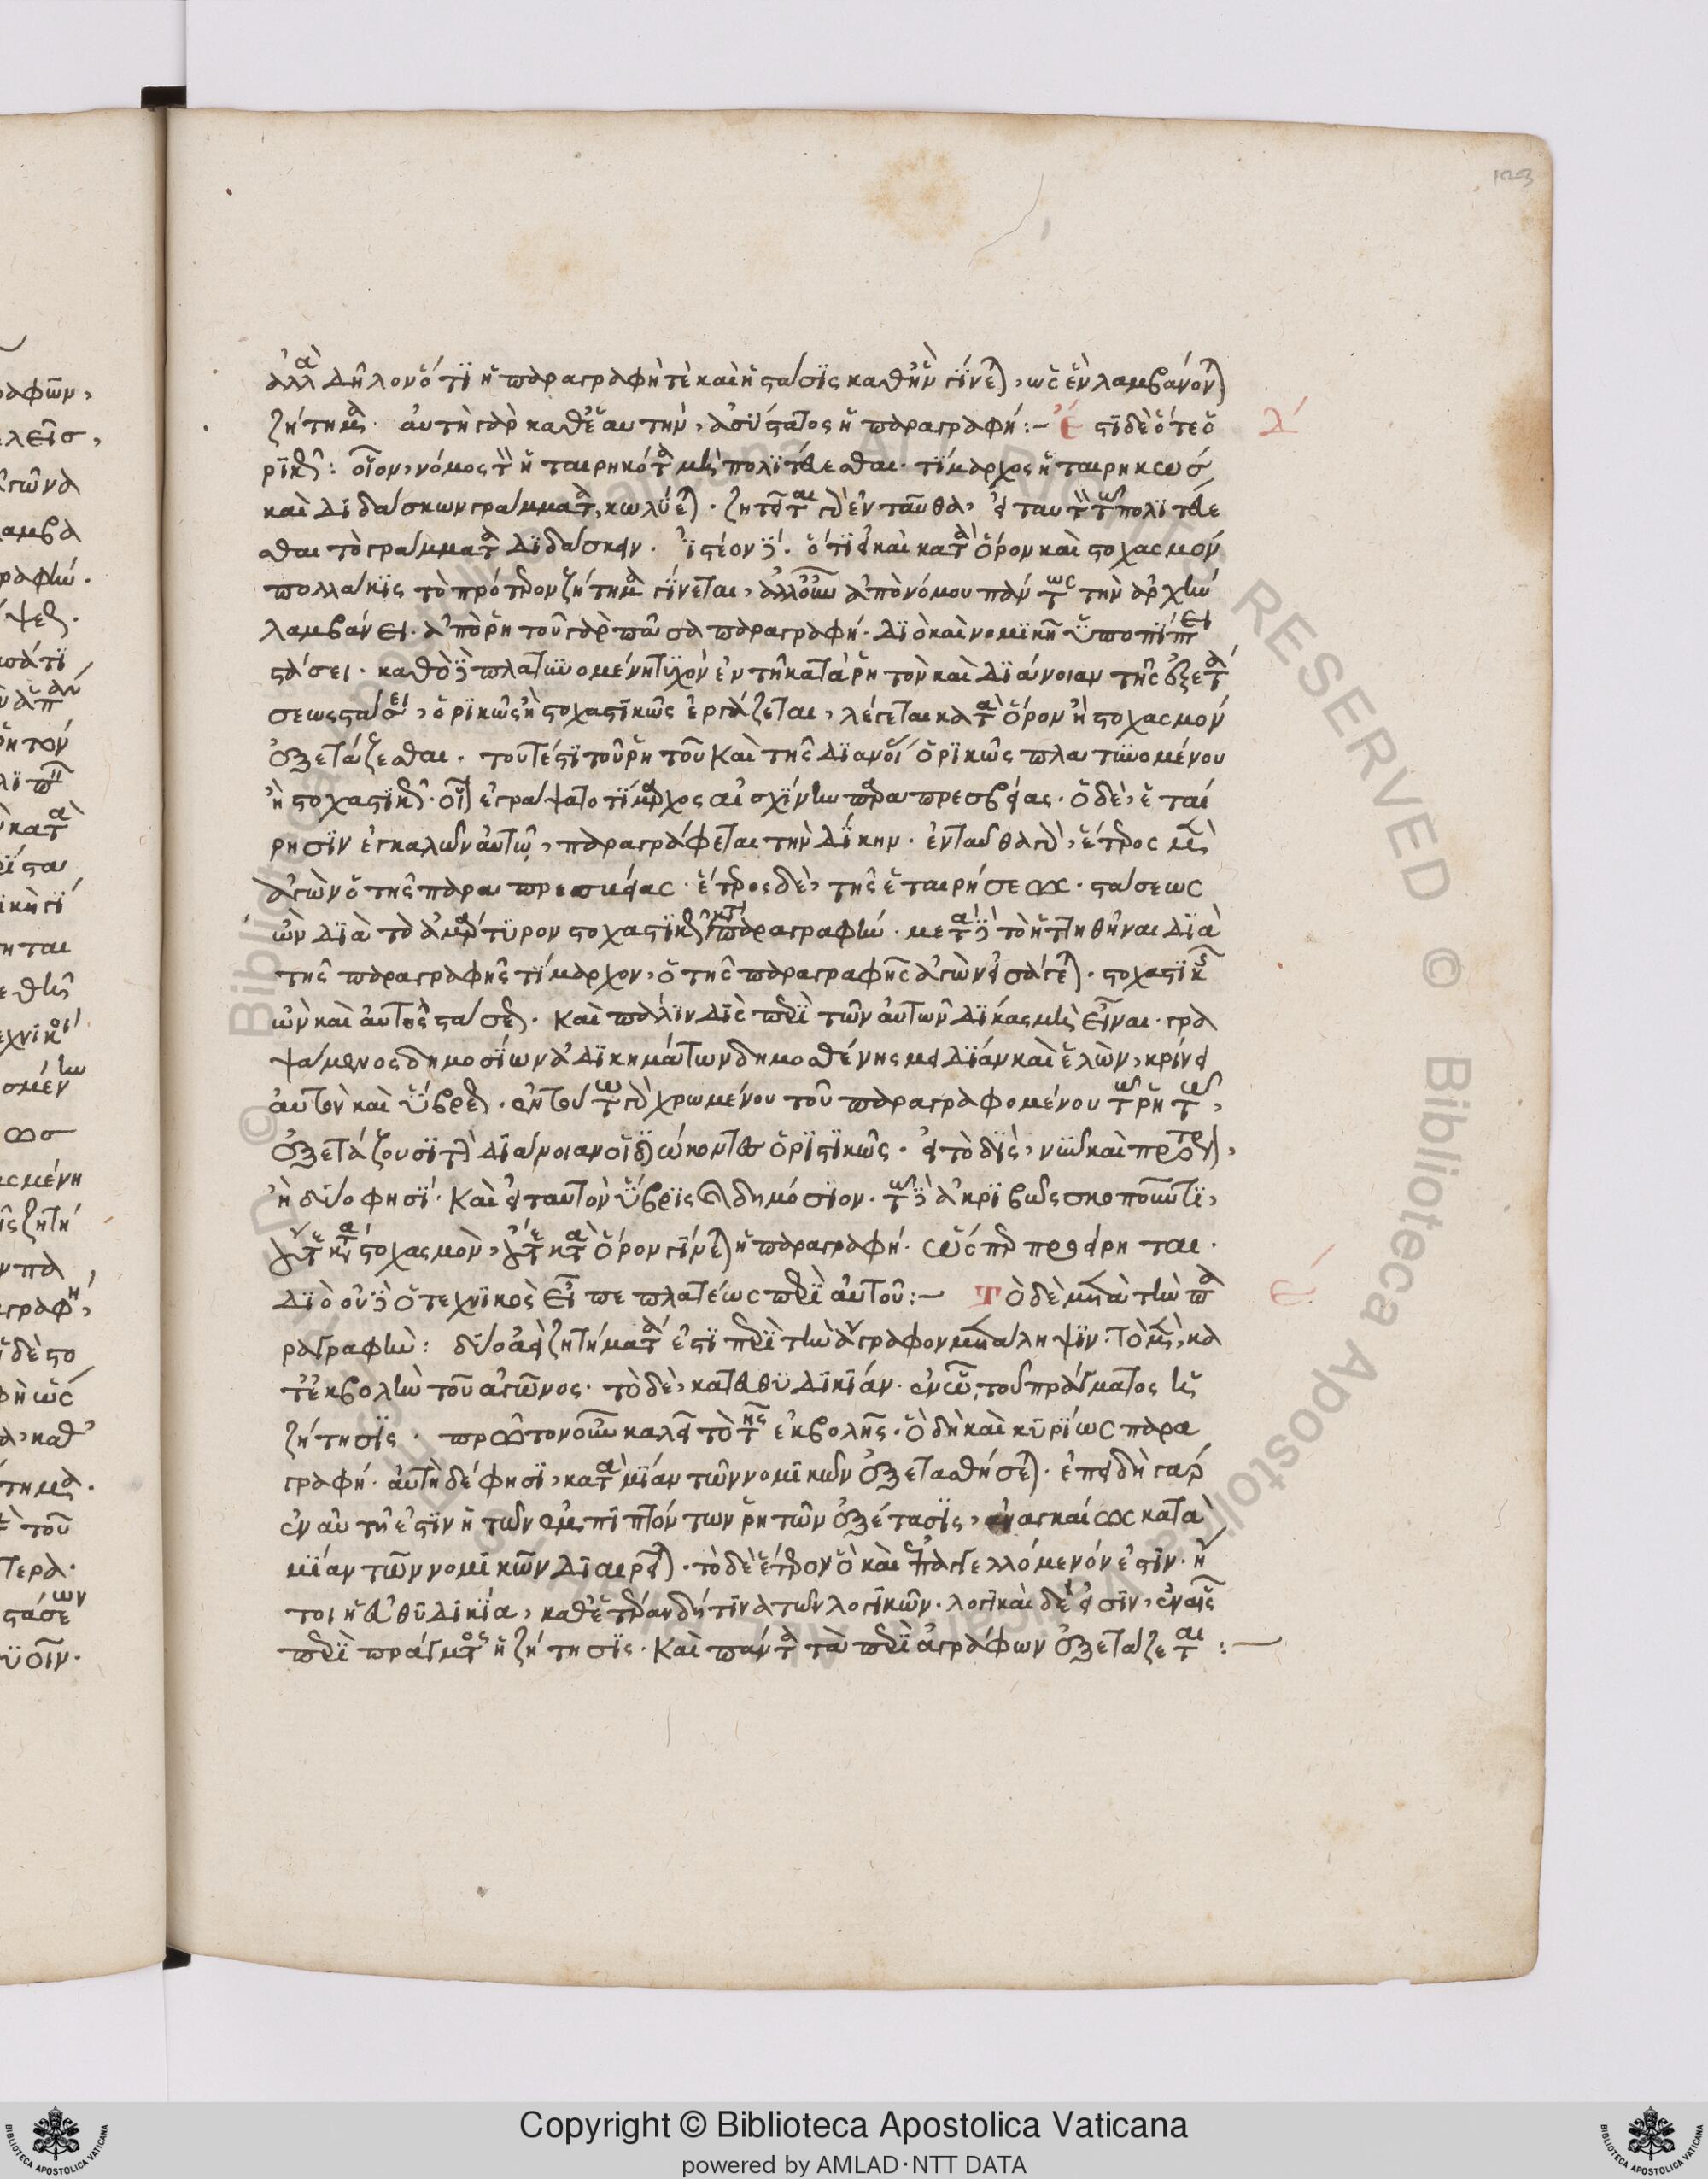 123
ἀλλὰ δηλονότι ἡ παραγραφή τε καὶ ἡ στάσις καθ' ἣν γίνεται, ὡς ἓν λαμβάνονται
ζήτημα. αὐτὴ γὰρ καθ' ἑαυτὴν, ἀσύστατος ἡ παραγραφή:– ἔστι δὲ ὅτε ὁ
δ
ρικῶς: οἷον, νόμος τὸν ἡταιρηκότα μὴ πολιτεύεσθαι. τίμαρχος ἡταιρηκὼς
καὶ διδάσκων γράμματα, κωλύεται. ζητεῖται γὰρ ἐνταῦθα, εἰ ταυτὸν τῷ πολιτεύε
σθαι τὸ γράμματα διδάσκειν. ἰστέον δὲ. ὅτι εἰ καὶ κατὰ ὅρον καὶ στοχασμὸν
πολλάκις τὸ πρότερον ζήτημα γίνεται, ἀλλ' οὖν ἀπὸ νόμου πάντως τὴν ἀρχὴν
λαμβάνει. ἀπὸ ῥητοῦ γὰρ πᾶσα παραγραφή. διὸ καὶ νομικῇ ὑποπίπτει
στάσει. καθὸ δὲ πλατυνομένη τυχὸν ἐν τῇ κατὰ ῥητὸν καὶ διάνοιαν τῆς ἐξετά
σεως στάσει, ὁρικῶς ἢ στοχαστικῶς ἐργάζεται, λέγεται κατὰ ὅρον ἢ στοχασμὸν
ἐξετάζεσθαι. τουτέστι τοῦ ῥητοῦ καὶ τῆς διανοίας ὁρικῶς πλατυνομένου
ἢ στοχαστικῶς. οἷον ἐγράψατο τίμαρχος αἰσχίνην παραπρεσβείας. ὁ δὲ, ἑταί
ρησιν ἐγκαλῶν αὐτῷ, παραγράφεται τὴν δίκην. ἐνταῦθα γὰρ, ἕτερος μὲν
ἀγὼν ὁ τῆς παραπρεσβείας. ἕτερος δὲ, τῆς ἑταιρήσεως. στάσεως
ὢν διὰ τὸ ἀμάρτυρον στοχαστικῆς κατὰ παραγραφὴν. μετὰ δὲ τὸ ἡττηθῆναι διὰ
τῆς παραγραφῆς τίμαρχον, ὁ τῆς παραγραφῆς ἀγὼν εἰσάγεται. στοχαστικῆς
ὢν καὶ αὐτὸς στάσεως. καὶ πάλιν δὶς περὶ τῶν αὐτῶν δίκας μὴ εἶναι. γρα
ψάμενος δημοσίων ἀδικημάτων δημοσθένης μειδίαν καὶ ἑλὼν, κρίνει
αὐτὸν καὶ ὕβρεως. ἐπὶ τούτω γὰρ χρωμένου τοῦ παραγραφομένου τῷ ῥητῷ,
ἐξετάζουσι τὴν διάνοιαν οἱ διώκοντες ὁριστικῶς. εἰ τὸ δὶς, νῦν καὶ πρότερον,
ἢ δύο φησί. καὶ εἰ ταυτὸν ὕβρις καὶ δημόσιον. τῷ δὲ ἀκριβῶς σκοποῦντι,
οὔτε κατὰ στοχασμὸν, οὔτε κατὰ ὅρον γίνεται ἡ παραγραφή. ὥσπερ προείρηται.
διὸ οὐδὲ ὁ τεχνικὸς εἶπε πλατέως περὶ αὐτοῦ:– Τὸ δὲ μετὰ τὴν πα
ε
ραγραφὴν: δύο ἀεὶ ζητήματά ἐστι περὶ τὴν ἄγραφον μετάληψιν. τὸ μὲν, κα
τ' ἐκβολὴν τοῦ ἀγῶνος. τὸ δὲ, κατ' εὐθυδικίαν. ἐν ᾧ, τοῦ πράγματος ἡ
ζήτησις. πρῶτον οὖν καλεῖ τὸ τῆς ἐκβολῆς. ὃ δὴ καὶ κυρίως παρα
γραφή. αὕτη δέ φησι, κατὰ μίαν τῶν νομικῶν ἐξετασθήσεται. ἐπειδὴ γὰρ
ἐν αὐτῇ ἐστιν ἡ τῶν ἐμπιπτόντων ῥητῶν ἐξέτασις, ἀναγκαίως κατὰ
μίαν τῶν νομικῶν διαιρεῖται. τὸ δὲ ἕτερον ὃ καὶ ἐπαγγελλόμενόν ἐστιν. ἤ
τοι ἡ εὐθυδικία, καθ' ἑτέραν δή τινα τῶν λογικῶν. λογικαὶ δέ εἰσιν, ἐν αἷς
περὶ πράγματος ἡ ζήτησις. καὶ πάντα τὰ περὶ ἀγράφων ἐξετάζεται:—